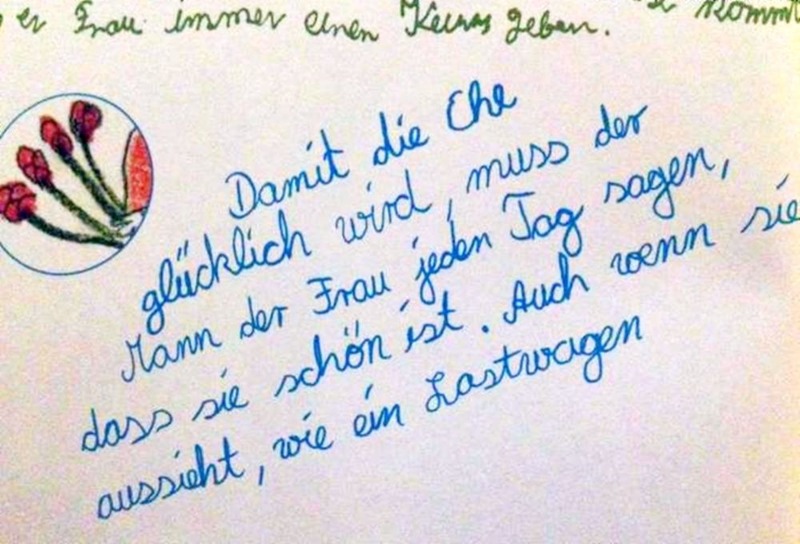 er Frau immer einen geben.
kommt
Damit die Ehe
glücklich wird, muss der
Mann der Frau jeden Tag sagen,
dass sie schön ist. Auch wenn sie
aussieht, wie ein Lastwagen